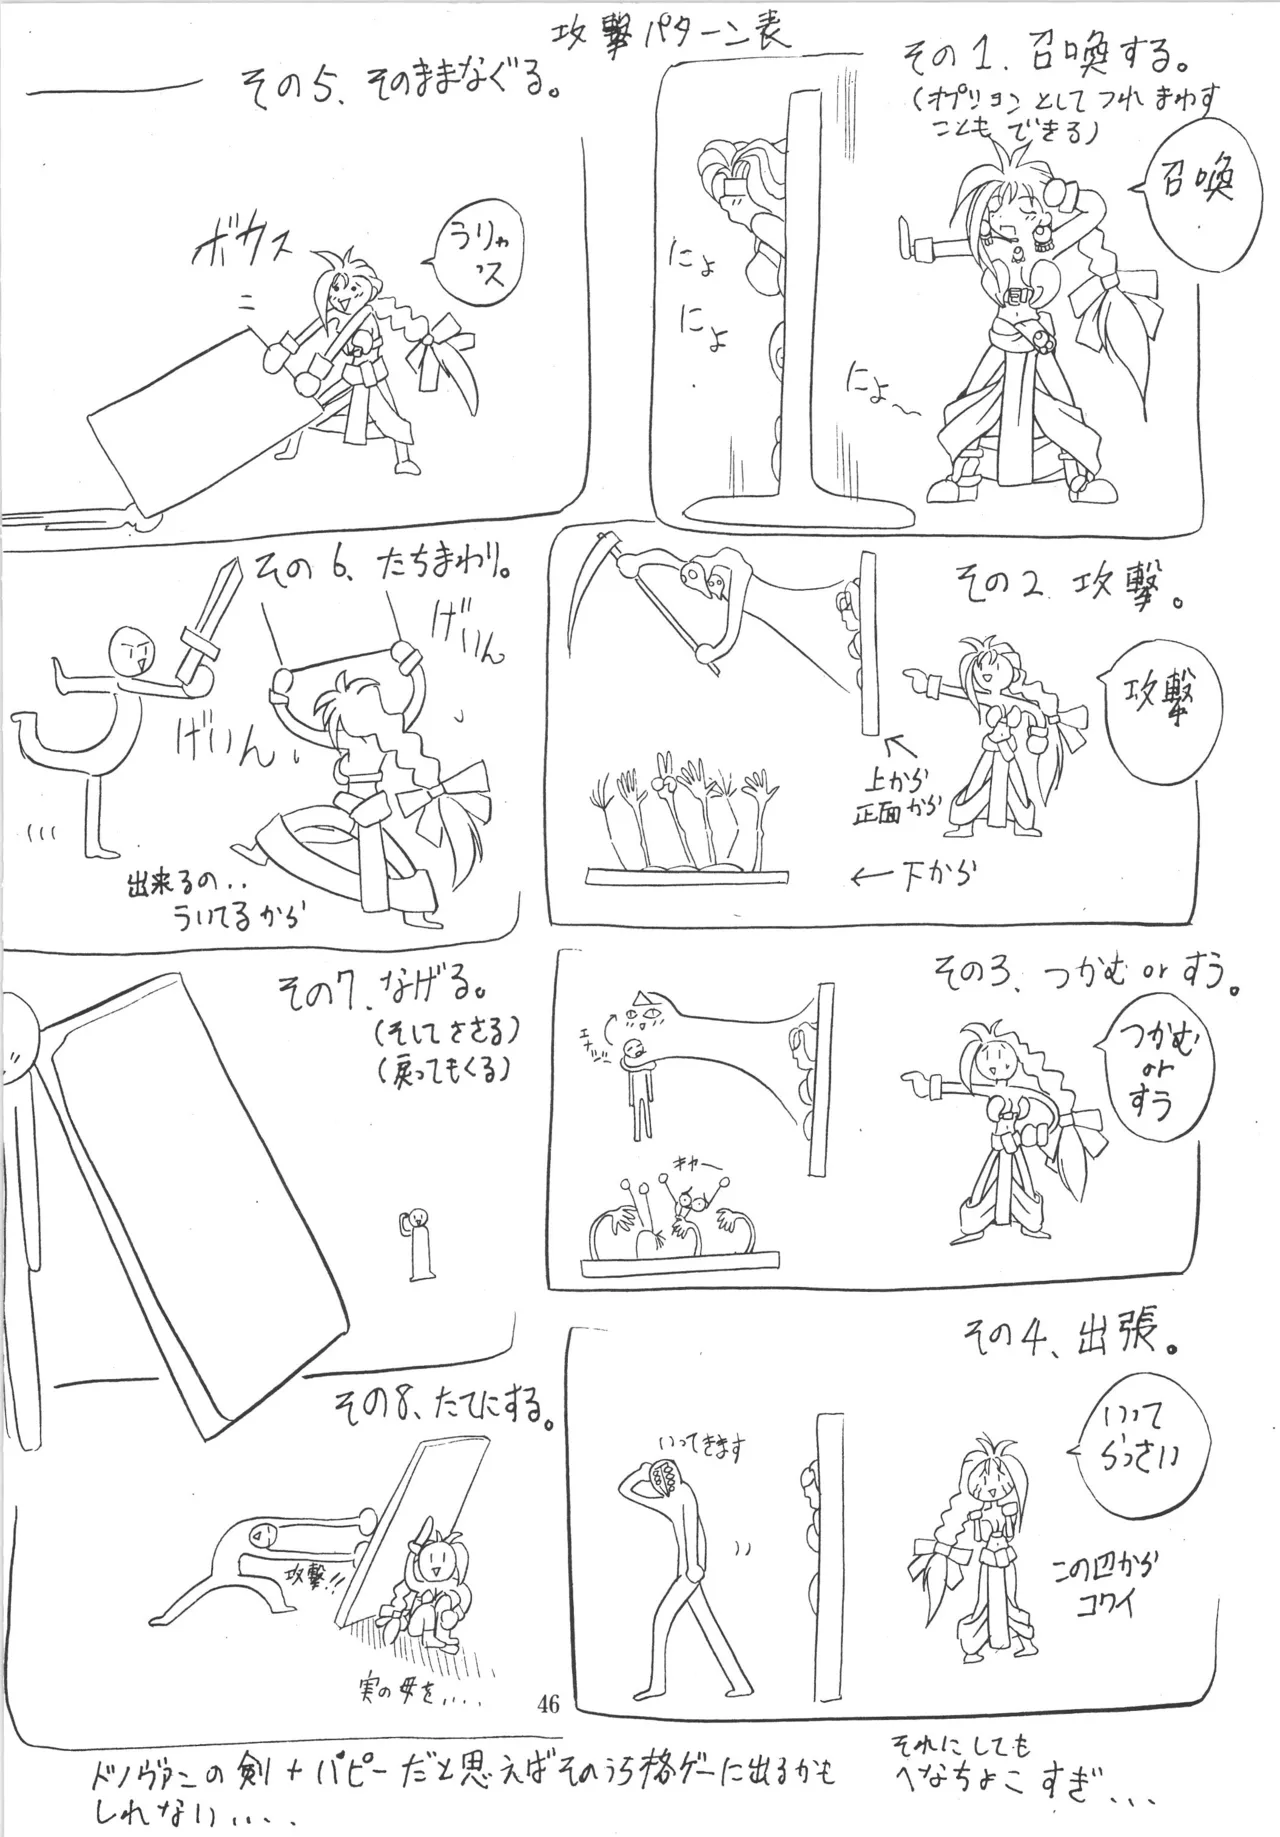 攻撃パターン表
その1、召喚する。
(オプションとしてつれまわす
こともできる)
召喚
にょ
にょ
にょ〜
その2 攻撃。
攻撃
上から
正面から
←下から
その3、つかむorすう。
つかむ
or
すう
キャー
その4、出張。
いって
らっさい
いってきます
この辺から
コワイ
その5、そのままなぐる。
うりゃ
ス
ボカス
その6、たちまわり。
げいん
げいん
出来るの..
ういてるから
その7、なげる。
(そしてささる)
(戻ってもくる)
その8、たてにする。
攻撃!!
実の母を....
46
ドノヴァンの剣+パピーだと思えばそのうち格ゲーに出るかも
しれない....
それにしても
へなちょこすぎ...